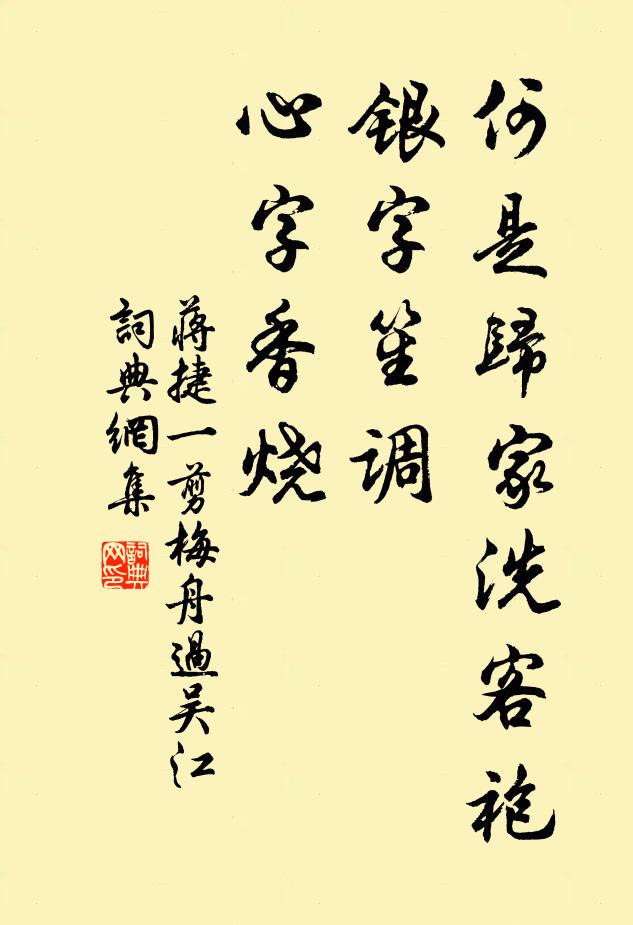 何是歸家洗客袍
銀字笙调
心字香烧
蔣捷一剪梅舟過吴江
詞典網集
詞典网印